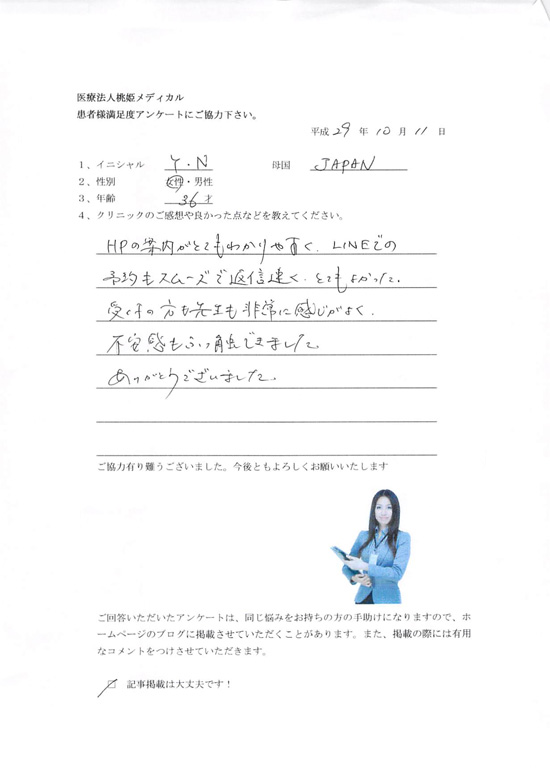 医療法人桃姫メディカル
患者様満足度アンケートにご協力下さい。
平成 29 年 10 月 11 日
1、イニシャル Y.N 母国 JAPAN
2、性別 女性・男性
3、年齢 36 才
4、クリニックのご感想や良かった点などを教えてください。
HPの案内がとてもわかりやすく、LINEでの
予約もスムーズで返信速く、とてもよかった。
受付の方も先生も非常に感じがよく、
不安感もふっ触できました。
ありがとうございました。
ご協力有り難うございました。今後ともよろしくお願いいたします
ご回答いただいたアンケートは、同じ悩みをお持ちの方の手助けになりますので、ホ
ームページのブログに掲載させていただくことがあります。また、掲載の際には有用
なコメントをつけさせていただきます。
☑ 記事掲載は大丈夫です！